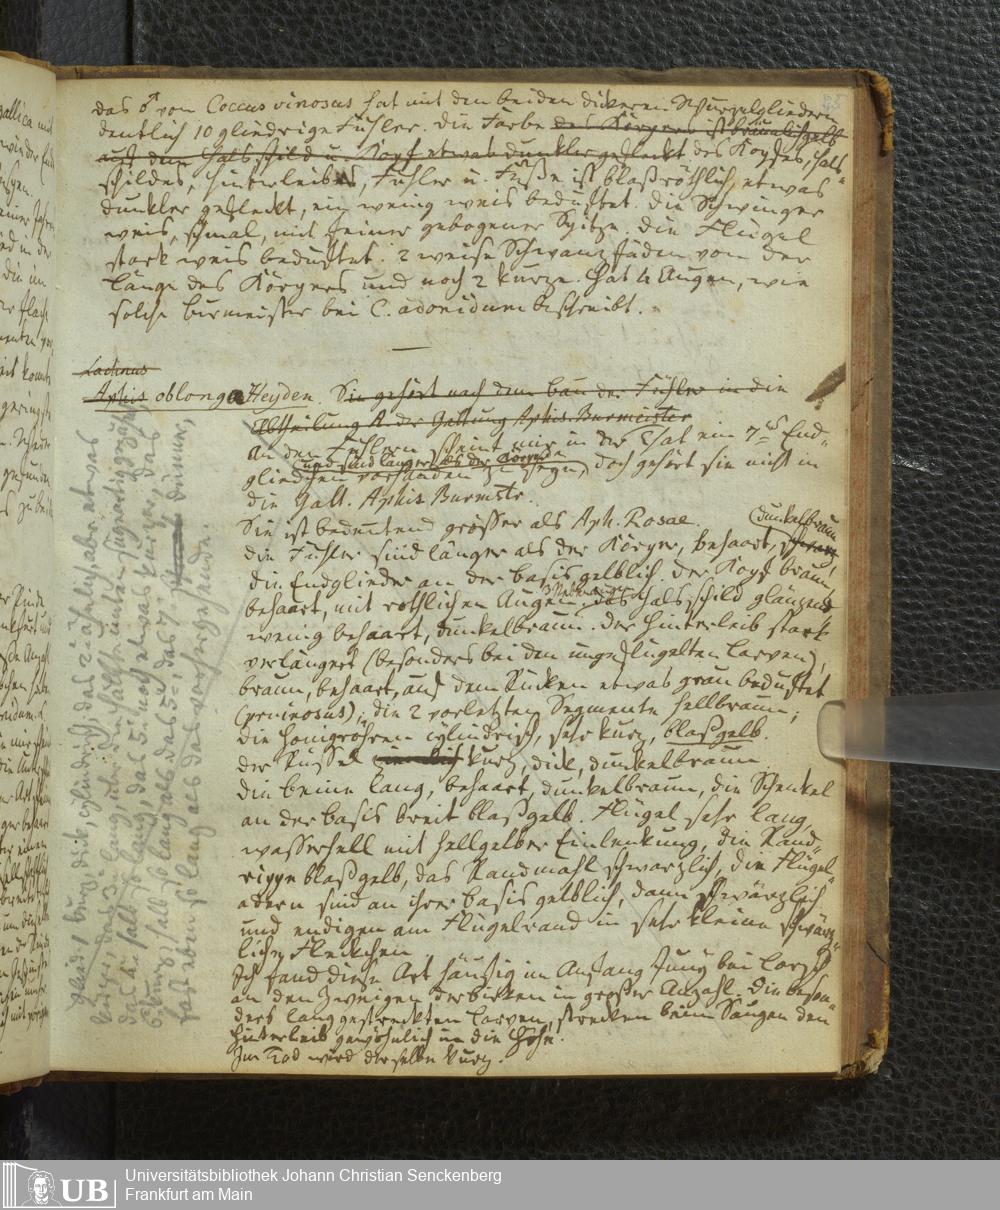 das ♂ von Coccus vinosus hat mit den beiden dickeren Wurzelgliedern
deutlich 10 gliedrige Fühler. die Farbe des Körpers ist bräunlichgelb
auf dem Halsschild u. Kopf etwas dunkler gefleckt des Kopfes, Hals-
schildes, Hinterleibes, Fühler u. Füße ist blaßröthlich, etwas
dunkler gefleckt, ein wenig weis beduftet. die Schwinger
weis, schmal, mit feiner gebogener Spitze. die Flügel
stark weis beduftet. 2 weise Schwanzfäden von der
Länge des Körpers und noch 2 kurze. Hat 4 Augen, wie
solche Burmeister bei C. adonidum beschreibt.
Lachnus
Aphis oblonga Heyden. Sie gehört nach dem Bau der Fühler in die
Abtheilung A. der Gattung Aphis. Burmeister
An den Fühlern scheint mir in der That ein 7tes End-
(und sind länger als der Körper
gliedchen vorhanden zu seyn, doch gehört sie nicht in
die Gatt. Aphis Burmstr.
Sie ist bedeutend grösser als Aph. Rosae.
(dunkelbraun
die Fühler sind länger als der Körper, behaart, schwarz,
die Endglieder an der Basis gelblich. der Kopf braun,
behaart, mit rothlichen Augen, das Halsschild glänzend
wenig behaart, dunkelbraun. der Hinterleib stark
verlängert (besonders bei den ungeflügelten Larven),
braun, behaart, auf dem Rücken etwas grau beduftet
(pruinosus), die 2 vorletzten Segmente hellbraun;
die Honigröhren cylindrisch, sehr kurz, blaßgelb.
der Rüssel kurz, dick, dunkelbraun
die Beine lang, behaart, dunkelbraun, die Schenkel
an der Basis breit blaßgelb. Flügel sehr lang,
wasserhell mit hellgelber Einlenkung, die Rand-
rippe blaßgelb, das Randmahl schwarzlich, die Flügel-
adern sind an ihrer Basis gelblich, dann schwärzlich
und endigen am Flügelrand in sehr kleine schwärz-
liche Fleckchen
Ich fand diese Art häufig im Anfang Juny bei Lorch
an den Zweigen der Birken in großer Anzahl. Die beson-
ders langgestreckten Larven, strecken beim Saugen den
Hinterleib gewöhnlich in die Höhe.
Im Tod wird derselbe kurz.
Glied: 1 kurz, dick, cylindrisch, das 2 ähnlich, aber etwas
das 4. halb so lang, das 5. noch etwas kürzer, das
6. kurz, halb so lang als das 5te, das 7. dünner,
fast eben so lang als das vorhergehende.
Universitätsbibliothek Johann Christian Senckenberg
Frankfurt am Main
UB